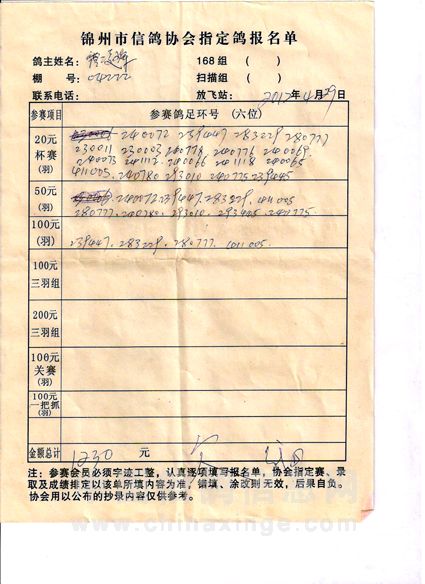 锦州市信鸽协会指定鸽报名单
鸽主姓名: 168组 ( )
棚 号: 04222 扫描组 ( )
联系电话: 放飞站: 2012年4月29日
参赛项目 参赛鸽足环号 (六位)
20元 240072 239447 283229 280777
杯赛 230011 230003 280778 240776 240069
(羽) 240073 241112 240066 241118 240065
411005 240780 293010 240775 239445
50元 240072 239447 283229 411005
(羽) 280777 240780 293010 293405 240775
100元
(羽) 239447 283229 280777 411005
100元
三羽组
200元
三羽组
100元
关赛
(羽)
100元
一把抓
(羽)
金额总计 1230 元
注:参赛会员必须字迹工整,认真逐项填写报名单,协会指定赛、录
取及成绩排定以该单所填内容为准,错填、涂改则无效,后果自负。
协会用以公布的抄录内容仅供参考。
www.chinaxinge.com